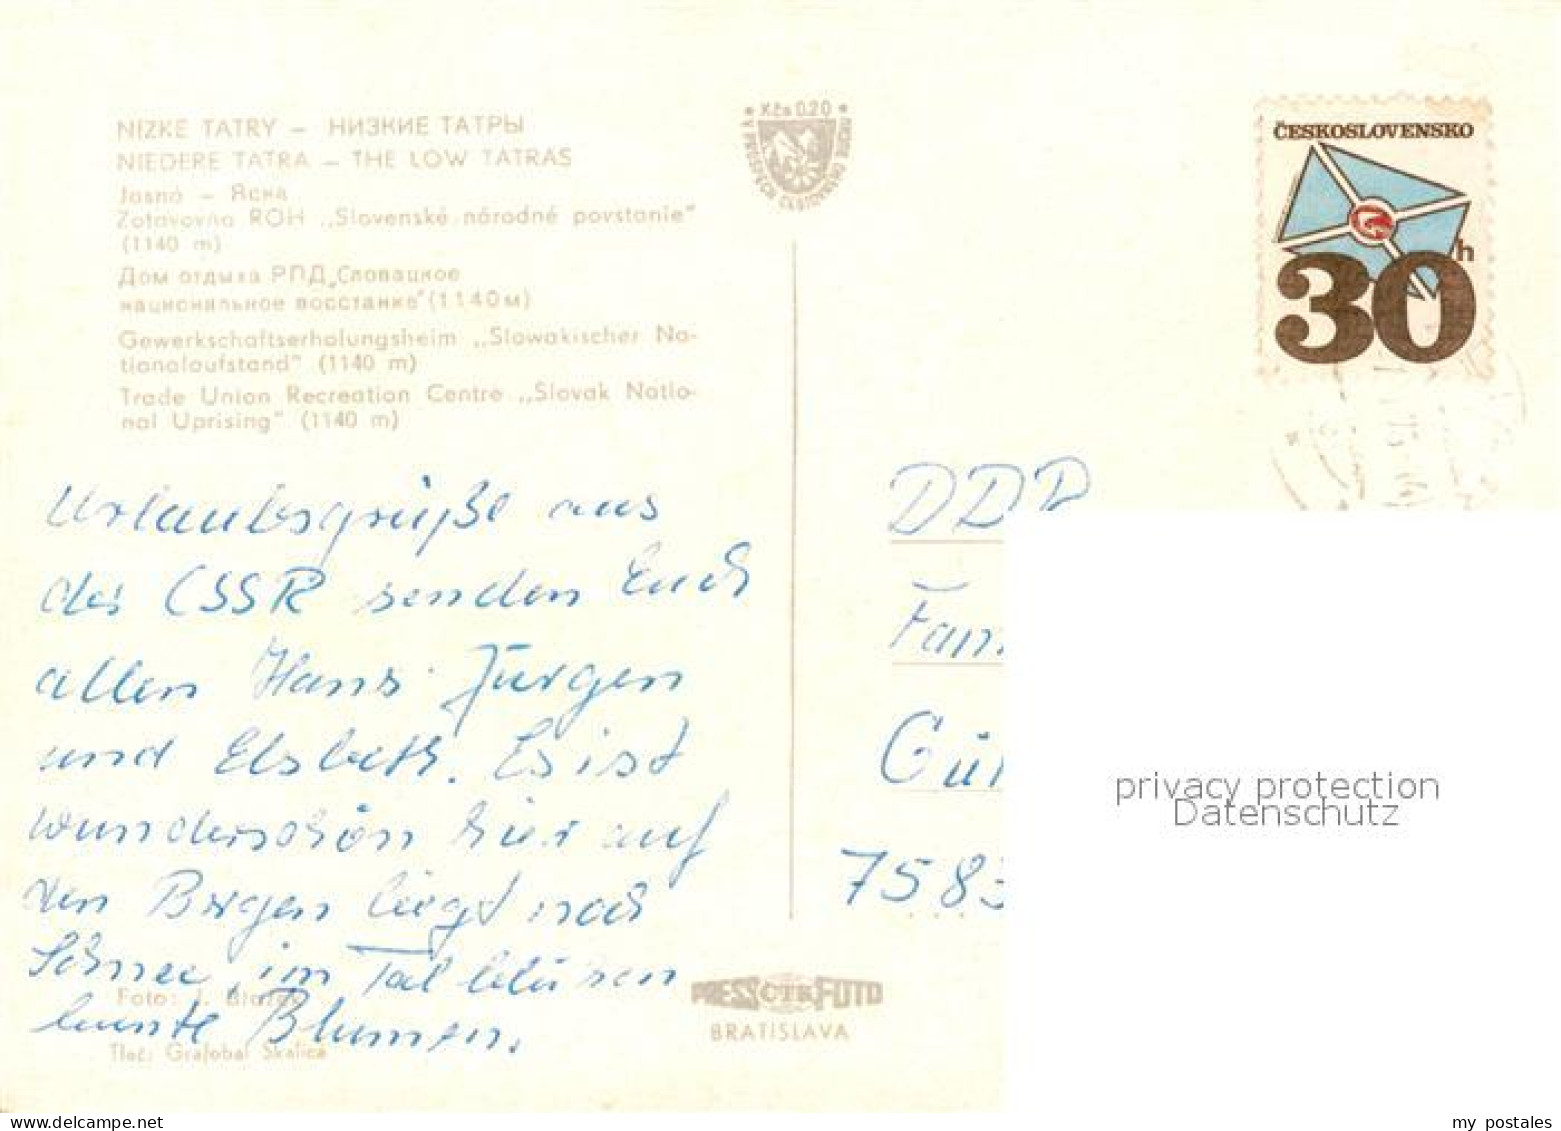 NÍZKE TATRY – НИЗКИЕ ТАТРЫ
NIEDERE TATRA – THE LOW TATRAS
Jasná – Ясна
Zotavovňa ROH „Slovenské národné povstanie"
(1140 m)
Дом отдыха РПД„Словацкое
национальное восстание"(1140м)
Gewerkschaftserholungsheim „Slowakischer Na-
tionalaufstand" (1140 m)
Trade Union Recreation Centre „Slovak Natio-
nal Uprising" (1140 m)
Urlaubsgrüße aus
der CSSR senden Euch
allen Hans-Jürgen
und Elsbeth. Es ist
wunderschön hier auf
den Bergen liegt noch
Schnee, im Tal blühen
bunte Blumen.
Foto: J.
Tlač: Grafobal Skalica
* Kčs 0,20 *
V PROSPECH CESTOVNÉHO RUCHU
ČESKOSLOVENSKO
30 h
DDR
Fam
Gü
7583
PRESS ČTK FOTO
BRATISLAVA
privacy protection
Datenschutz
my postales